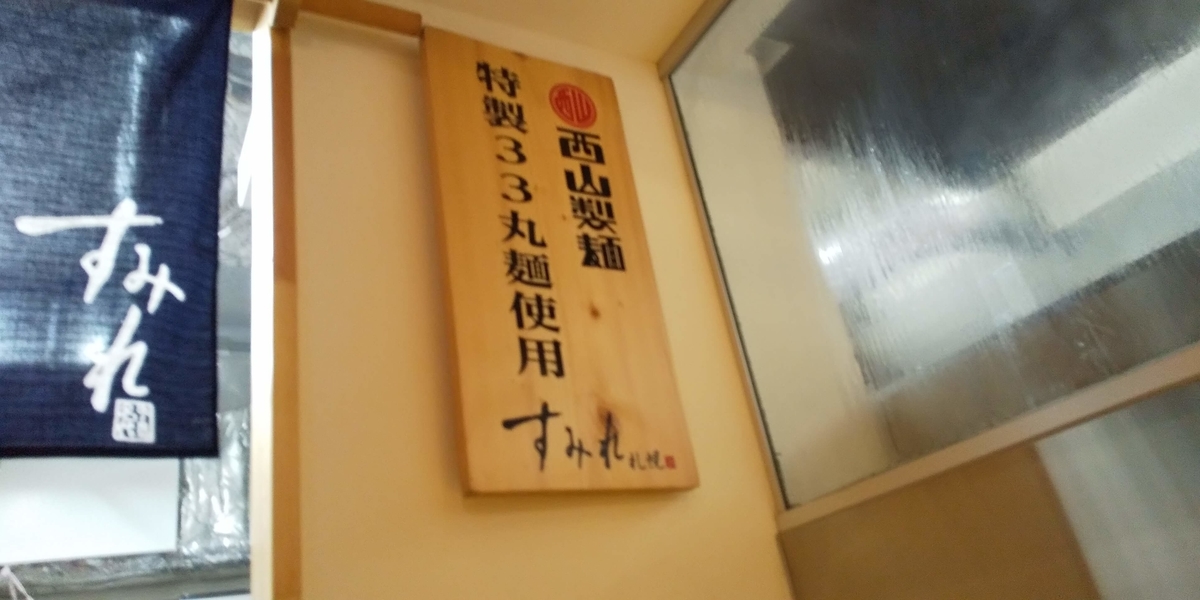 西山製麺
特製33丸麺使用
すみれ 札幌
すみれ